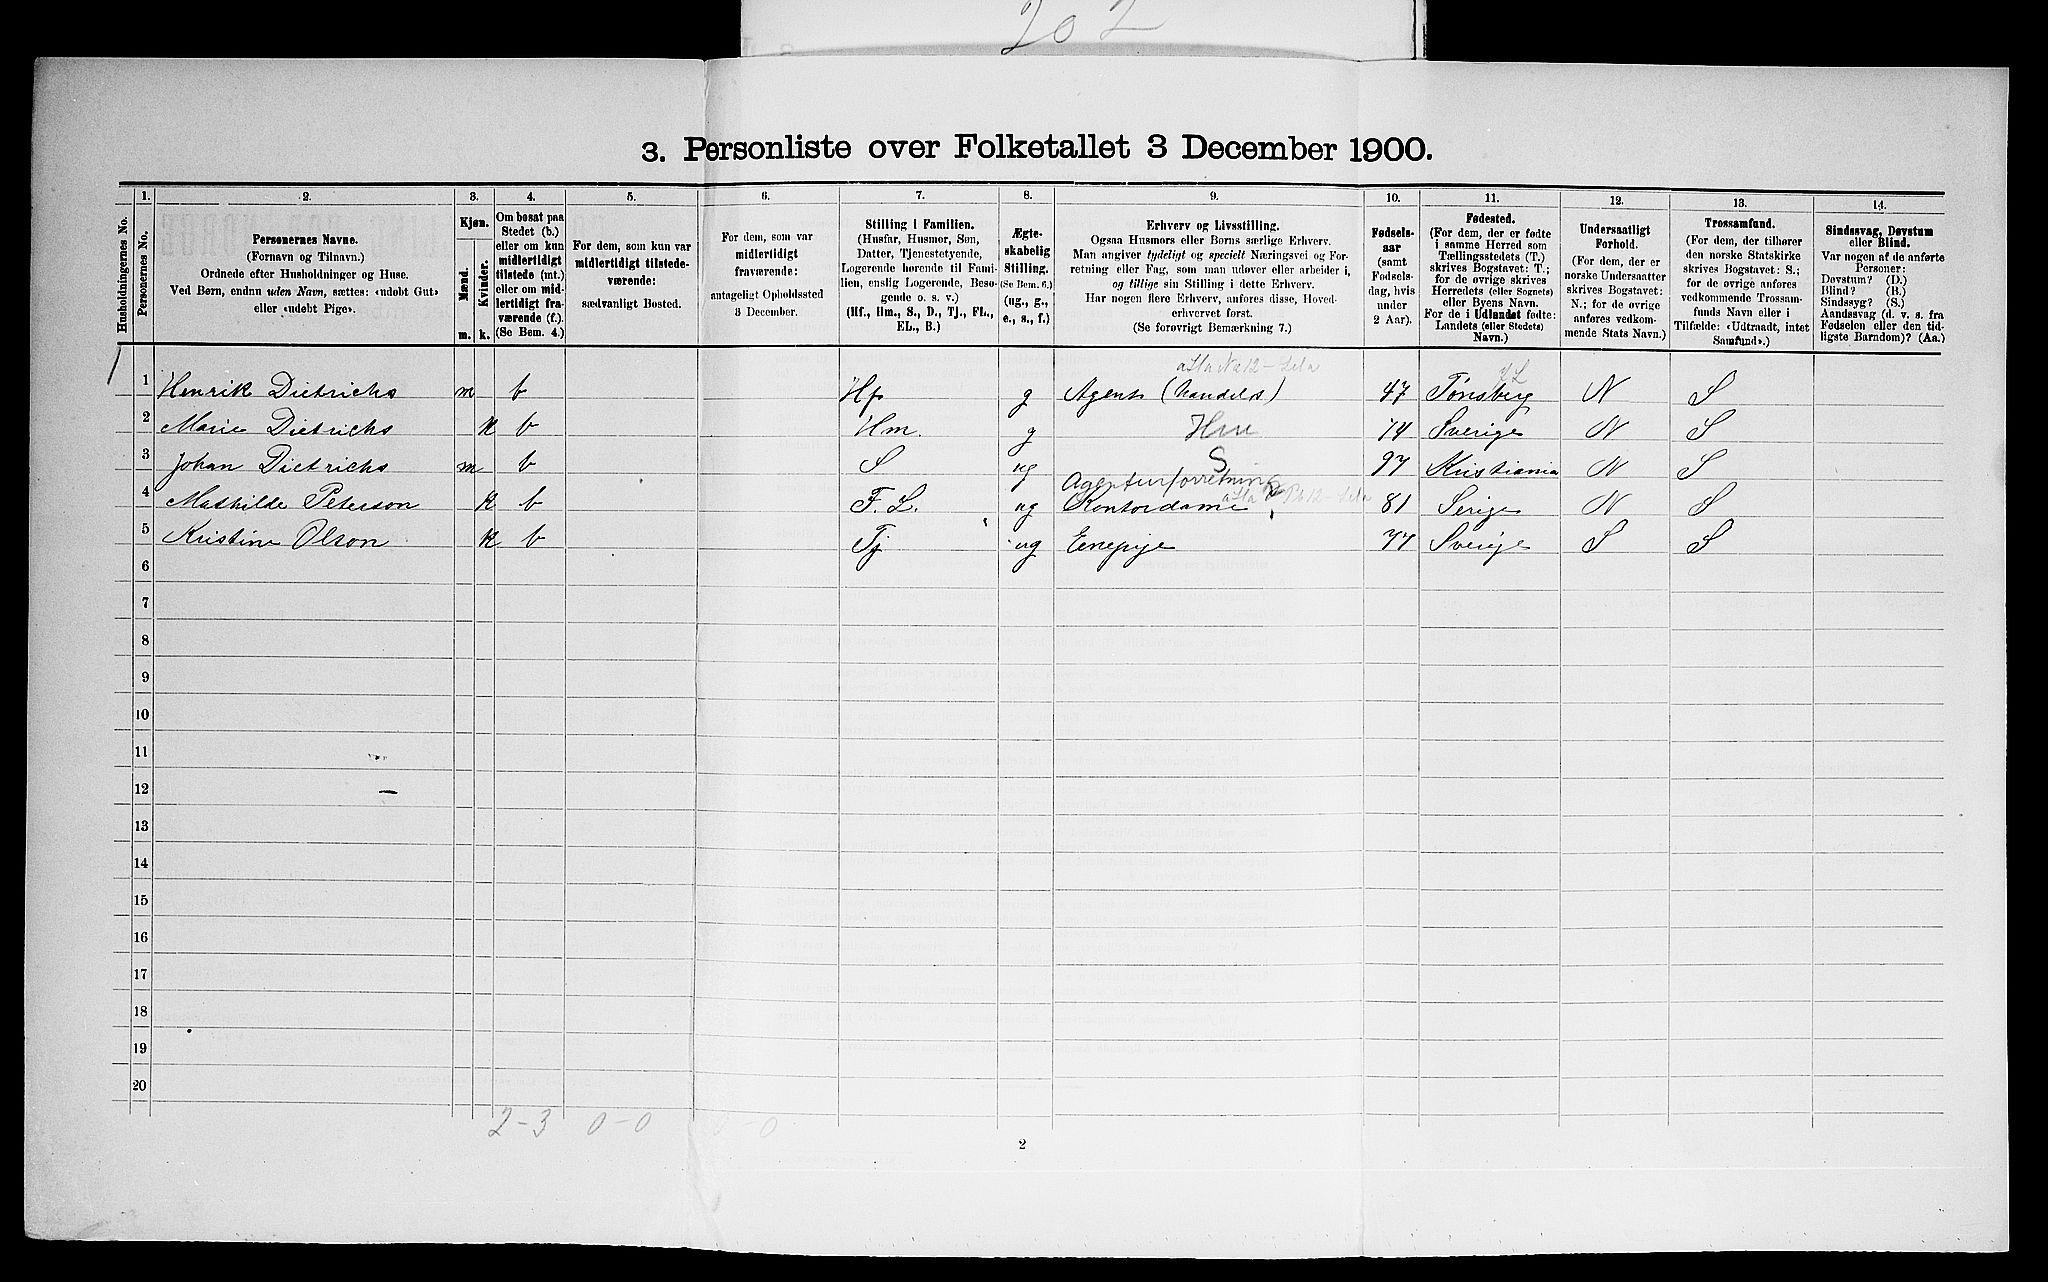 202
3. Personliste over Folketallet 3 December 1900.
1. 2. 3. 4. 5. 6. 7. 8. 9. 10. 11. 12. 13. 14.
Husholdningernes No.
Personernes No.
Personernes Navne.
(Fornavn og Tilnavn.)
Ordnede efter Husholdninger og Huse.
Ved Børn, endnu uden Navn, sættes: «udøbt Gut»
eller «udøbt Pige».
Kjøn.
Mænd.
Kvinder.
m. k.
Om bosat paa
Stedet (b.)
eller om kun
midlertidigt
tilstede (mt.)
eller om mid-
lertidigt fra-
værende (f.).
(Se Bem. 4.)
For dem, som kun var
midlertidigt tilstede-
værende:
sædvanligt Bosted.
For dem, som var
midlertidigt
fraværende:
antageligt Opholdssted
3 December.
Stilling i Familien.
(Husfar, Husmor, Søn,
Datter, Tjenestetyende,
Logerende hørende til Fami-
lien, enslig Logerende, Besø-
gende o. s. v.)
(Hf., Hm., S., D., Tj., FL.,
EL., B.)
Ægte-
skabelig
Stilling.
(Se Bem. 6.)
(ug., g.,
e., s., f.)
Erhverv og Livsstilling.
Ogsaa Husmors eller Børns særlige Erhverv.
Man angiver tydeligt og specielt Næringsvei og For-
retning eller Fag, som man udøver eller arbeider i,
og tillige sin Stilling i dette Erhverv.
Har nogen flere Erhverv, anføres disse, Hoved-
erhvervet først.
(Se forøvrigt Bemærkning 7.)
Fødsels-
aar
(samt
Fødsels-
dag, hvis
under
2 Aar).
Fødested.
(For dem, der er fødte
i samme Herred som
Tællingsstedets (T.)
skrives Bogstavet: T.;
for de øvrige skrives
Herredets (eller Sognets)
eller Byens Navn.
For de i Udlandet fødte:
Landets (eller Stedets)
Navn.)
Undersaatligt
Forhold.
(For dem, der er
norske Undersaatter
skrives Bogstavet:
N.; for de øvrige
anføres vedkom-
mende Stats Navn.)
Trossamfund.
(For dem, der tilhører
den norske Statskirke
skrives Bogstavet: S.;
for de øvrige anføres
vedkommende Trossam-
funds Navn eller i
Tilfælde: «Udtraadt, intet
Samfund».)
Sindssvag, Døvstum
eller Blind.
Var nogen af de anførte
Personer:
Døvstum? (D.)
Blind? (B.)
Sindssyg? (S.)
Aandssvag (d. v. s. fra
Fødselen eller den tid-
ligste Barndom)? (Aa.)
1 1 Henrik Dietrichs m b Hf g Agent (handels) 47 Tønsberg N S
2 Marie Dietrichs k b Hm. g Hm 74 Sverige N S
3 Johan Dietrichs m b S ug S 97 Kristiania N S
Agenturforretning
4 Mathilde Peterson k b F. L. ug Kontordame 81 Serige N S
5 Kristine Olson k b Tj ug Enepige 77 Sverige S S
6
7
8
9
10
11
12
13
14
15
16
17
18
19
20
2-3 0-0 0-0
2